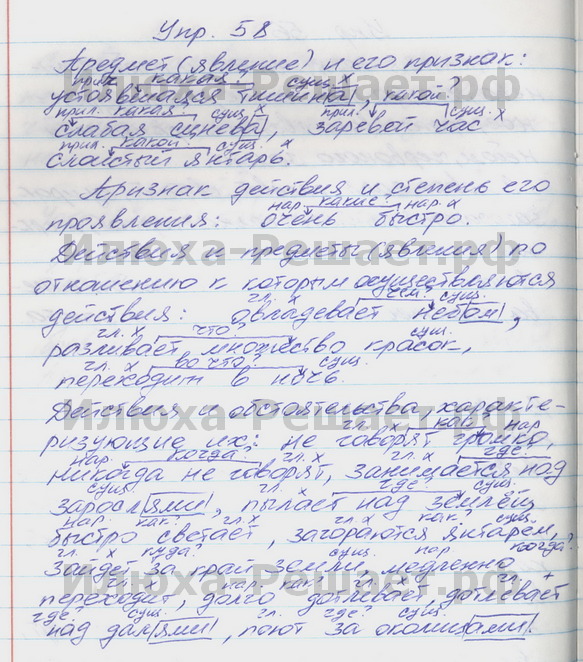 Упр. 58
Предмет (явление) и его признак:
прил. какая? сущ. х
устоявшаяся тишина, какой?
прил. какая? сущ. прил. сущ. х
слабая синева, заревой час
прил. какой? сущ. х
слоистый янтарь.
Признак действия и степень его
нар. какие? нар. х
проявления: очень быстро.
Действия и предметы (явления) по
отношению к которым осуществляются
гл. х чем? сущ.
действия: овладевает небом,
гл. х что? сущ.
разливает множество красок,
гл. х во что? сущ.
переходит в ночь.
Действия и обстоятельства, характе-
гл. х как? нар
ризующие их: не говорят громко,
нар. когда? гл. х гл. х где?
никогда не говорят, занимается над
сущ. гл. х где? сущ.
зарослями, пылает над землей,
нар. как? гл. х гл. х как? сущ.
быстро светает, загораются янтарем,
гл. х куда? сущ. нар когда?
зайдет за край земли, медленно
гл. х нар. как? гл. х гл. +
переходит, долго дотлевает дотлевает
где? сущ. гл. где? сущ.
над далями, поют за околицами.
Илюха-Решает.рф
Илюха-Решает.рф
Илюха-Решает.рф
Илюха-Решает.рф
Илюха-Решает.рф